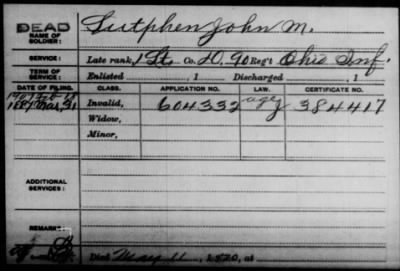 DEAD
NAME OF
SOLDIER: Sutphen John M.
SERVICE: Late rank, 1 Lt. Co. D, 90 Reg't Ohio Inf.
TERM OF
SERVICE: Enlisted , 1 Discharged , 1
DATE OF FILING. CLASS. APPLICATION NO. LAW. CERTIFICATE NO.
1887 Mar, 31 Invalid, 604332 age 384417
Widow,
Minor,
ADDITIONAL
SERVICES:
REMARKS:
Died May 11, 1920, at